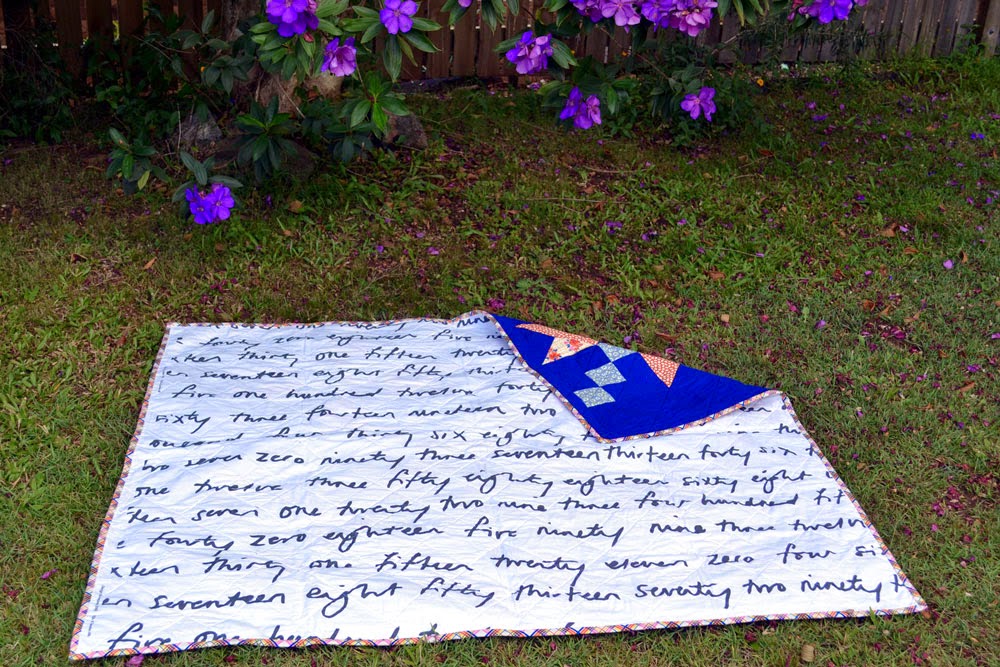 nine
four zero eighteen five
xteen thirty one fifteen twenty
en seventeen eight fifty, thirt
five one hundred twelve forty
sixty three fourteen nineteen two
thousand four thirty six eighty, t
two seven zero ninety three seventeen thirteen forty six t
one twelve three fifty eighty eighteen sixty eight
teen seven one twenty two nine three four hundred fif
e forty zero eighteen five ninety nine three twelve
xteen thirty one fifteen twenty eleven zero four six
en seventeen eight fifty thirteen seventy two ninety t
five one hundred